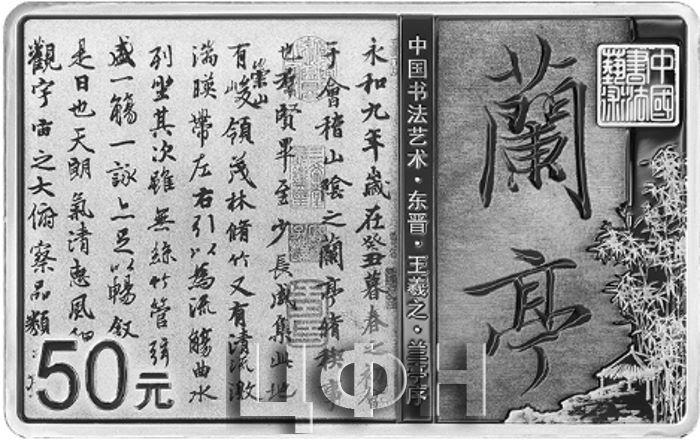 中國書法藝術
蘭亭
中国书法艺术·东晋·王羲之·兰亭序
永和九年歲在癸丑暮春之初
于會稽山陰之蘭亭脩稧事
也羣賢畢至少長咸集此地
有崇山峻領茂林脩竹又有清流激
湍暎帶左右引以為流觴曲水
列坐其次雖無絲竹管弦
盛一觴一詠亦足以暢叙
是日也天朗氣清惠風和
觀宇宙之大俯察品類之
50元
ЦФН